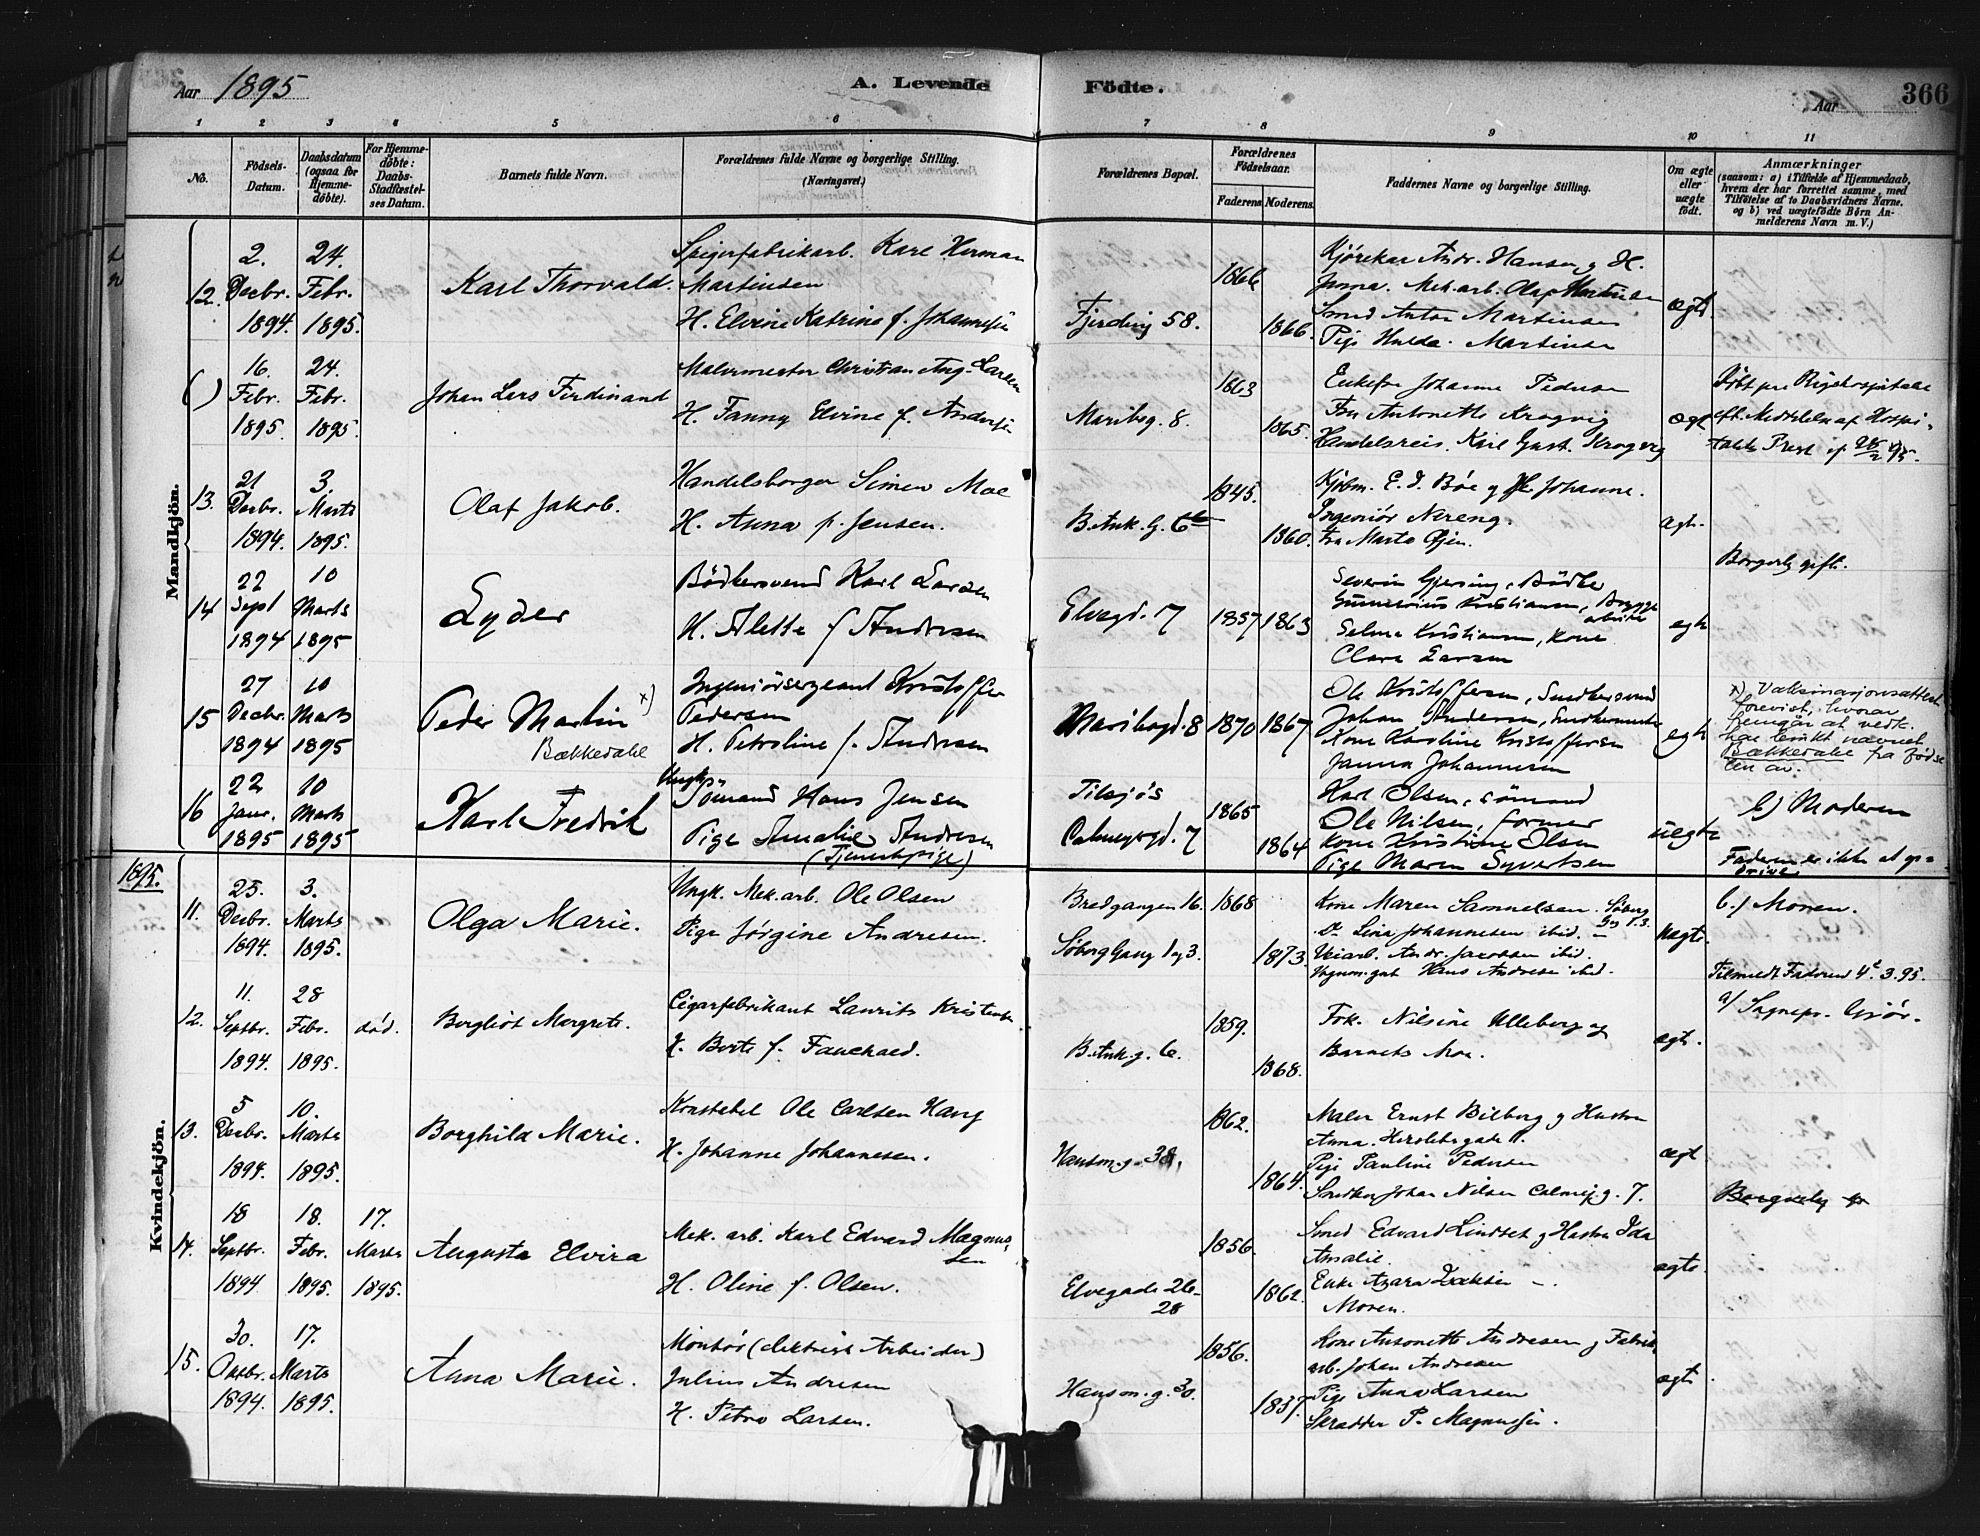 Aar 1895
A. Levende Födte.
Aar
366
1 2 3 4 5 6 7 8 9 10 11
No.
Födsels-Datum.
Daabsdatum (ogsaa for Hjemme-döbte).
For Hjemme-döbte: Daabs-Stadfæstel-ses Datum.
Barnets fulde Navn.
Forældrenes fulde Navne og borgerlige Stilling. (Næringsvei.)
Forældrenes Bopæl.
Forældrenes Födselsaar.
Faderens
Moderens
Faddernes Navne og borgerlige Stilling.
Om ægte eller uægte födt.
Anmærkninger
(saasom: a) i Tilfælde af Hjemmedaab,
hvem der har forrettet samme, med
Tilföielse af to Daabsvidners Navne.
og b) ved uægtefödte Börn An-
melderens Navn m. V.)
Mandkjön.
12. 2. Decbr. 1894. 24. Febr. 1895.
Karl Thorvald.
Spigerfabrikarb. Karl Herman
Martinsen
H. Elvine Katrine f. Johannesen
Fjerding 58.
1866
1866.
Kjørekar Andr. Hansen og H.
Mek. arb. Olaf Martinsen
Smed Anton Martinsen
Pige Hulda Martinsen
ægte.
( ) 16. Febr. 1895. 24. Febr. 1895.
Johan Lars Ferdinand
Malermester Christian Aug. Larsen
H. Fanny Elvine f. Andersen
Maribog. 8.
1863
1865.
Enkefru Johanne Pedersen
Fru Antonette Krogvig
Handelsreis. Karl Gust. Krogvig
ægte
Döbt paa Rigshospitalet
eft. Meddelelse af Hospi-
talets Prest af 28/2 95.
13. 21 Decbr. 1894. 3 Marts 1895.
Olaf Jakob.
Handelsborger Simen Moe
H. Anna f. Jensen.
B. Ank. G. 6
1845.
1860.
Kjøbm. E. J. Bøe og H. Johanne.
Ingeniør Nereng.
Fru Marta Gjen.
ægte.
14 22 Sept 1894 10 Marts 1895
Lyder
Bödkersvend Karl Larsen
H. Alette f Andresen
Elvegd. 17
1857
1863
Severin Gjersing, Bödker
Gunerius Kristiansen, Brygge-
arbeider
Selma Kristiansen, Kone
Clara Larsen
egte
Borgerlig gift.
15 27 Decbr. 1894 10 Marts 1895
Peder Martin x)
Bækkedahl
Ingeniörsergeant Kristoffer
Pedersen
H. Petroline f. Andresen
Maribogd. 8
1870
1867
Ole Kristoffersen, Snedkersvend
Johan Andersen, Snedkermester
Kone Karoline Kristoffersen
Janna Johannesen
egte
x) Vaksinasjonsattest
forevist, hvorav
fremgår at vedk.
har brukt navnet
Bækkedahl fra fødse
len av.
16 22 Janr. 1895 10 Marts 1895
Karl Fredrik
Ungk.
Sömand Hans Jensen
Pige Amalie Andresen
(Tjenestepige)
Tilsjøs
Calmeyergd. 7
1865
1864
Karl Olsen, sömand
Ole Nilsen, former
Kone Kristine Olsen
Pige Maren Syvertsen
uegte
b) Moderen
Faderen er ikke at op-
drive.
1895.
Kvindekjön.
11. 25. Decbr. 1894. 3. Marts 1895.
Olga Marie.
Ungk. Mek. arb. Ole Olsen
Pige Jørgine Andresen.
Bredgangen 16.
Söberg Gang 1 og 3.
1868
1873.
Kone Maren Samuelsen. Söberg
Gg 1.3.
Do Lina Johannesen ibid.
Veiarb. Andr. Jacobsen ibid.
Vognm. gut Hans Andresen ibid.
uægte.
b.) Moren.
Tilmeldt Faderen 4. 3. 95.
12. 11. Septbr. 1894. 28 Febr. 1895. död.
Bergliot Margrete.
Cigarfabrikant Laurits Kristensen
H. Berte f. Fauchald.
B. Ank. g. 6.
1859.
1868.
Frk. Nilsine Ulleberg og
Barnets Mor.
ægte.
a/ Sognepr. Gjör.
13. 5 Decbr. 1894. 10. Marts 1895.
Borghild Marie.
Konstabel Ole Carlsen Haug
H. Johanne Johannesen.
Hansm. g. 38.
1862.
1864.
Maler Ernst Bilberg og Hustru
Anna. Herslebsgade 11.
Pige Pauline Pedersen
Snedker Johan Nilsen Calmej. g. 7.
ægte
14. 18 Septbr. 1894 18. Febr. 1895. 17. Marts 1895.
Augusta Elvira
Mek. arb. Karl Edvard Magnus-
sen
H. Oline f. Olsen.
Elvegade 26-
28
1856
1862.
Smed Edvard Lindset og Hustru Ida
Amalie.
Moren.
ægte.
15. 30. Oktbr. 1894. 17. Marts 1895.
Anna Marie.
Montör (elektrisk Arbeider)
Julius Andresen
H. Petra Larsen.
Hansm. g. 30.
1856.
1857.
Kone Antonette Andresen og Fabrik
arb. Johan Andresen
Pige Anna Larsen
Skrædder P. Magnussen.
ægte.